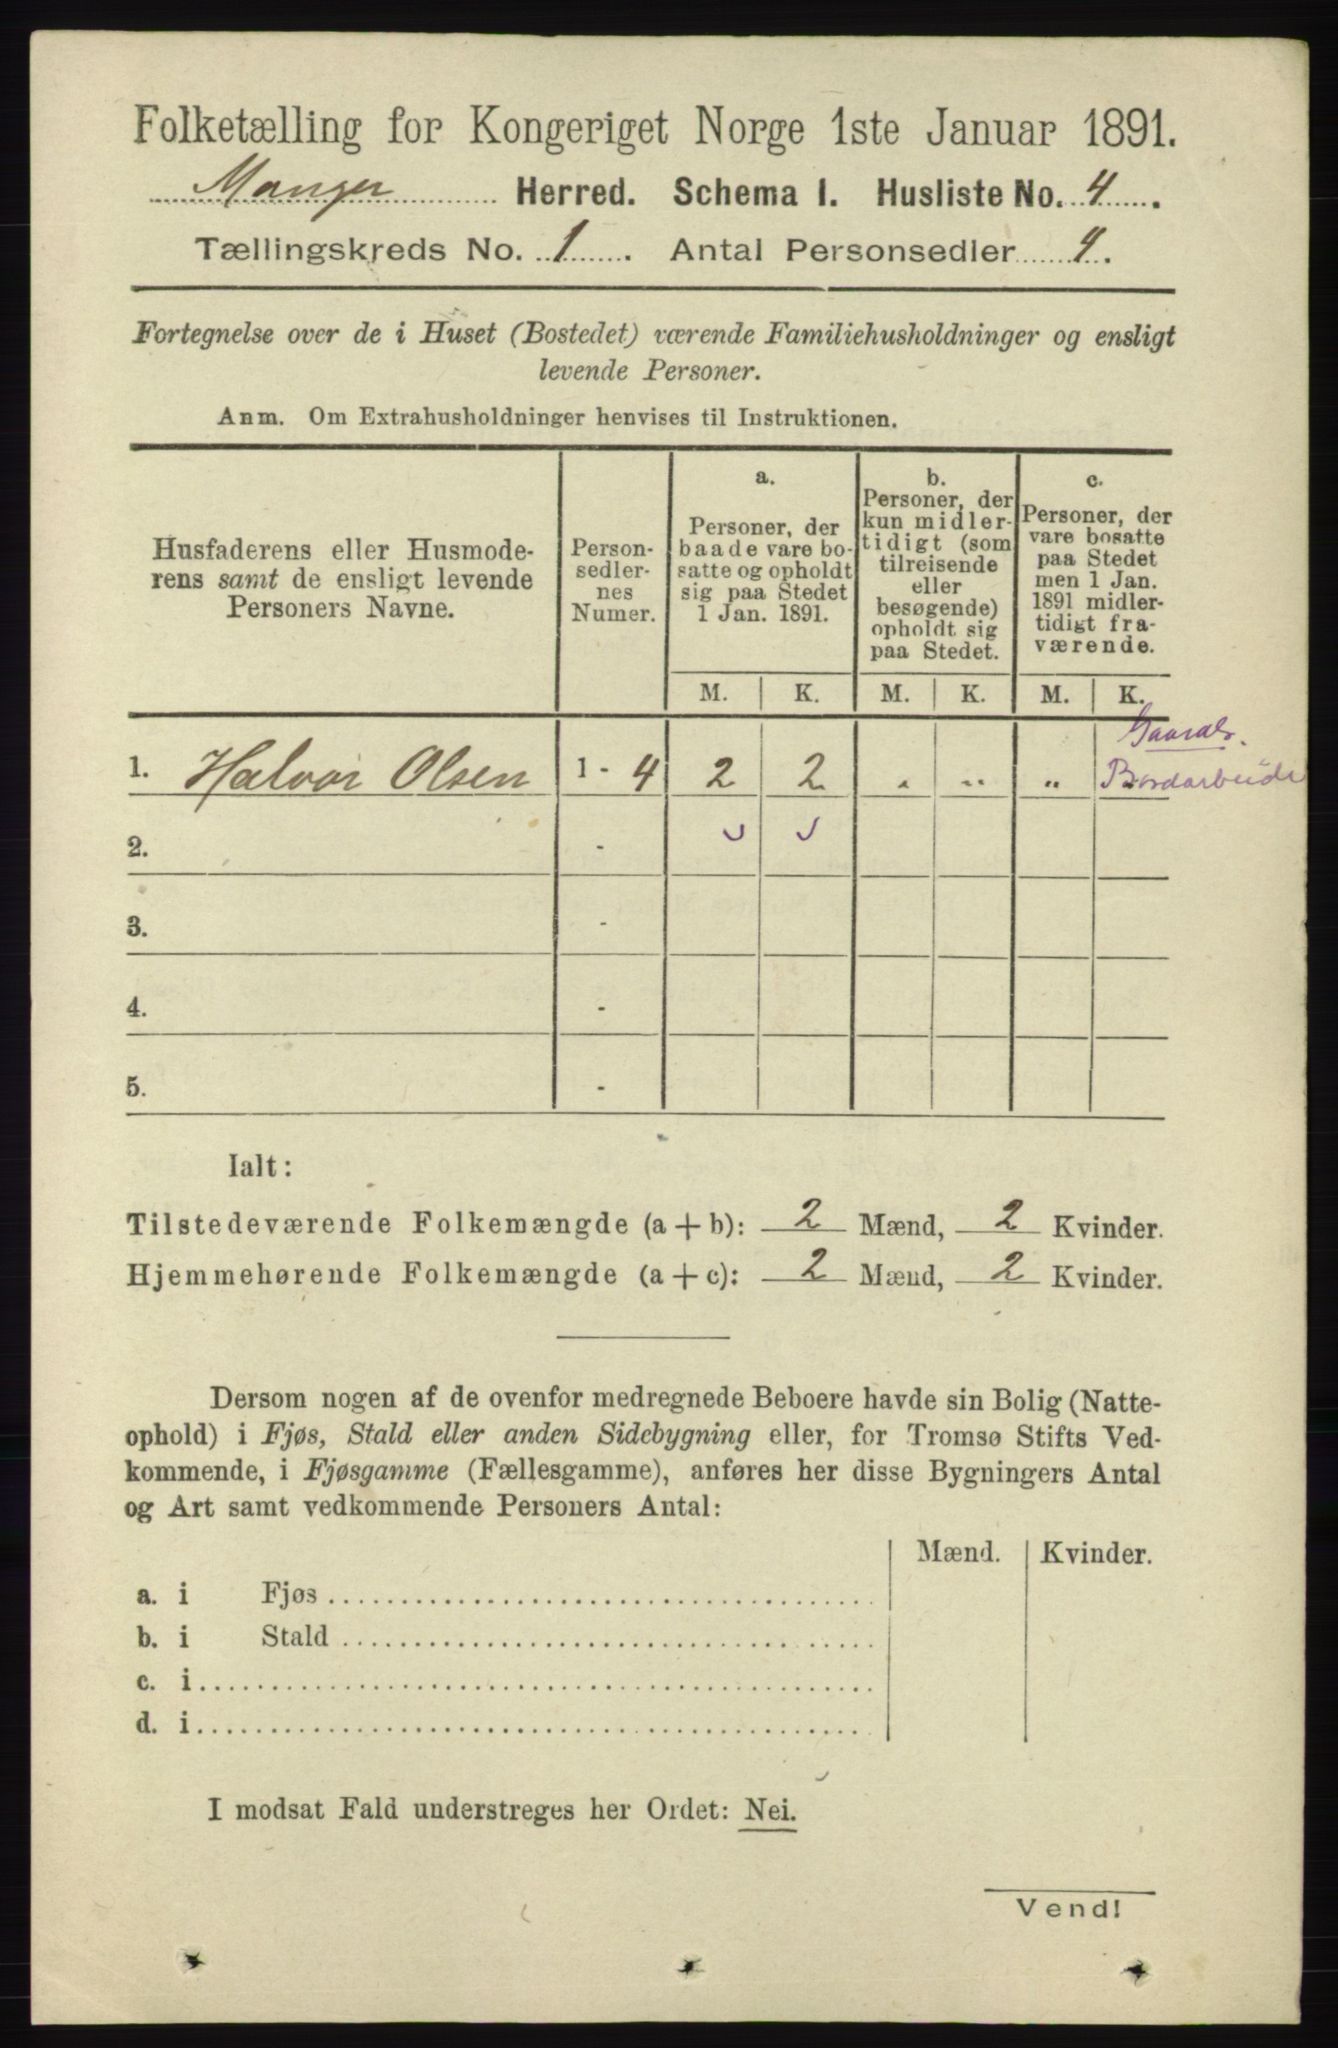 Folketælling for Kongeriget Norge 1ste Januar 1891.
Manger Herred. Schema 1. Husliste No. 4.
Tællingskreds No. 1. Antal Personsedler 4.
Fortegnelse over de i Huset (Bostedet) værende Familiehusholdninger og ensligt
levende Personer.
Anm. Om Extrahusholdninger henvises til Instruktionen.
Husfaderens eller Husmode-
rens samt de ensligt levende
Personers Navne.
Person-
sedler-
nes
Numer.
a.
Personer, der
baade vare bo-
satte og opholdt
sig paa Stedet
1 Jan. 1891.
b.
Personer, der
kun midler-
tidigt (som
tilreisende
eller
besøgende)
opholdt sig
paa Stedet.
c.
Personer, der
vare bosatte
paa Stedet
men 1 Jan.
1891 midler-
tidigt fra-
værende.
M. K. M. K. M. K.
1. Halvor Olsen 1 - 4 2 2 " " " Bordarbeide
2. -
3. -
4. -
5. -
Ialt:
Tilstedeværende Folkemængde (a + b): 2 Mænd, 2 Kvinder.
Hjemmehørende Folkemængde (a + c): 2 Mænd, 2 Kvinder.
Dersom nogen af de ovenfor medregnede Beboere havde sin Bolig (Natte-
ophold) i Fjøs, Stald eller anden Sidebygning eller, for Tromsø Stifts Ved-
kommende, i Fjøsgamme (Fællesgamme), anføres her disse Bygningers Antal
og Art samt vedkommende Personers Antal:
Mænd. Kvinder.
a. i Fjøs
b. i Stald
c. i
d. i
I modsat Fald understreges her Ordet: Nei.
Vend!